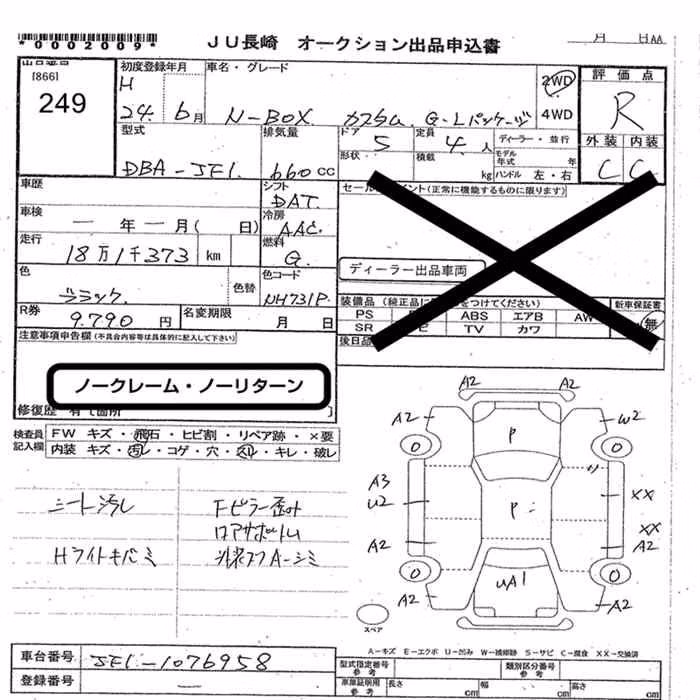 *0002009*
JU長崎 オークション出品申込書
月 日AA
出品番号
[866]
249
初度登録年月
H
24年 6月
車名・グレード
N-BOX カスタム G・Lパッケージ
2WD
4WD
評価点
R
外装 内装
C C
型式
DBA-JF1
排気量
660cc
ドア 5
形状
定員 4人
積載 kg
ディーラー・並行
モデル年式 年
ハンドル 左・右
車歴
シフト
DAT
セール
イント(正常に機能するものに限ります)
車検
一年一月( 日)
冷房
AAC
走行
18万1千373 km
燃料
G
ディーラー出品車両
色
ブラック
色替
色コード
NH731P
装備品(純正品に
をつけてください)
新車保証書
PS
ABS エアB AW
SR
TV カワ
無
R券
9.790円
名変期限
月 日
後日品
注意事項申告欄(不具合内容等は具体的に記入して下さい)
ノークレーム・ノーリターン
修復歴 有(箇所 )
検査員記入欄
FW キズ・飛石・ヒビ割・リペア跡・×要
内装 キズ・汚レ・コゲ・穴・スレ・キレ・破レ
シート汚レ
Fピラー歪み
ロアサポートム
Hライトキバミ
A2 A2
A2
W2
P
A3
U2
P
XX
XX
A2
A2
UA1
A2
A2
スペア
A-キズ E-エクボ U-凹み W-補修跡 S-サビ C-腐食 XX-交換済
車台番号
JF1-1076958
登録番号
型式指定番号 参考
類別区分番号 参考
車庫証明用 参考
長さ
幅
高さ